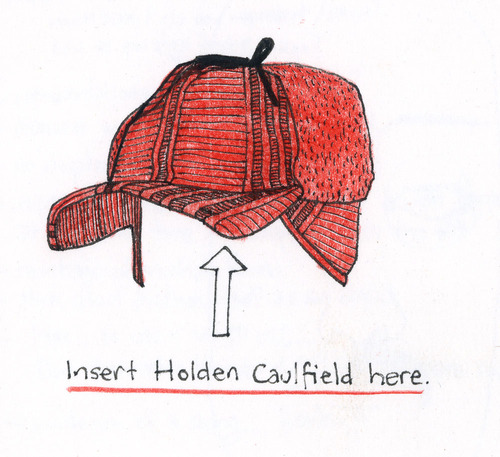 Insert Holden Caulfield here.